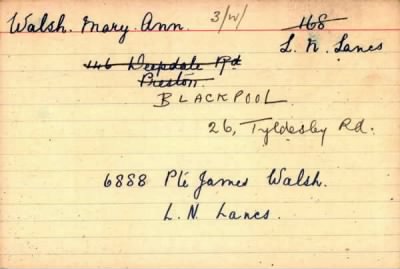 Walsh. Mary. Ann. 3/W/ 168
L. N. Lancs
146 Deepdale Rd
Preston.
BLACKPOOL.
26, Tyldesley Rd.
6888 Pte James Walsh.
L. N. Lancs.